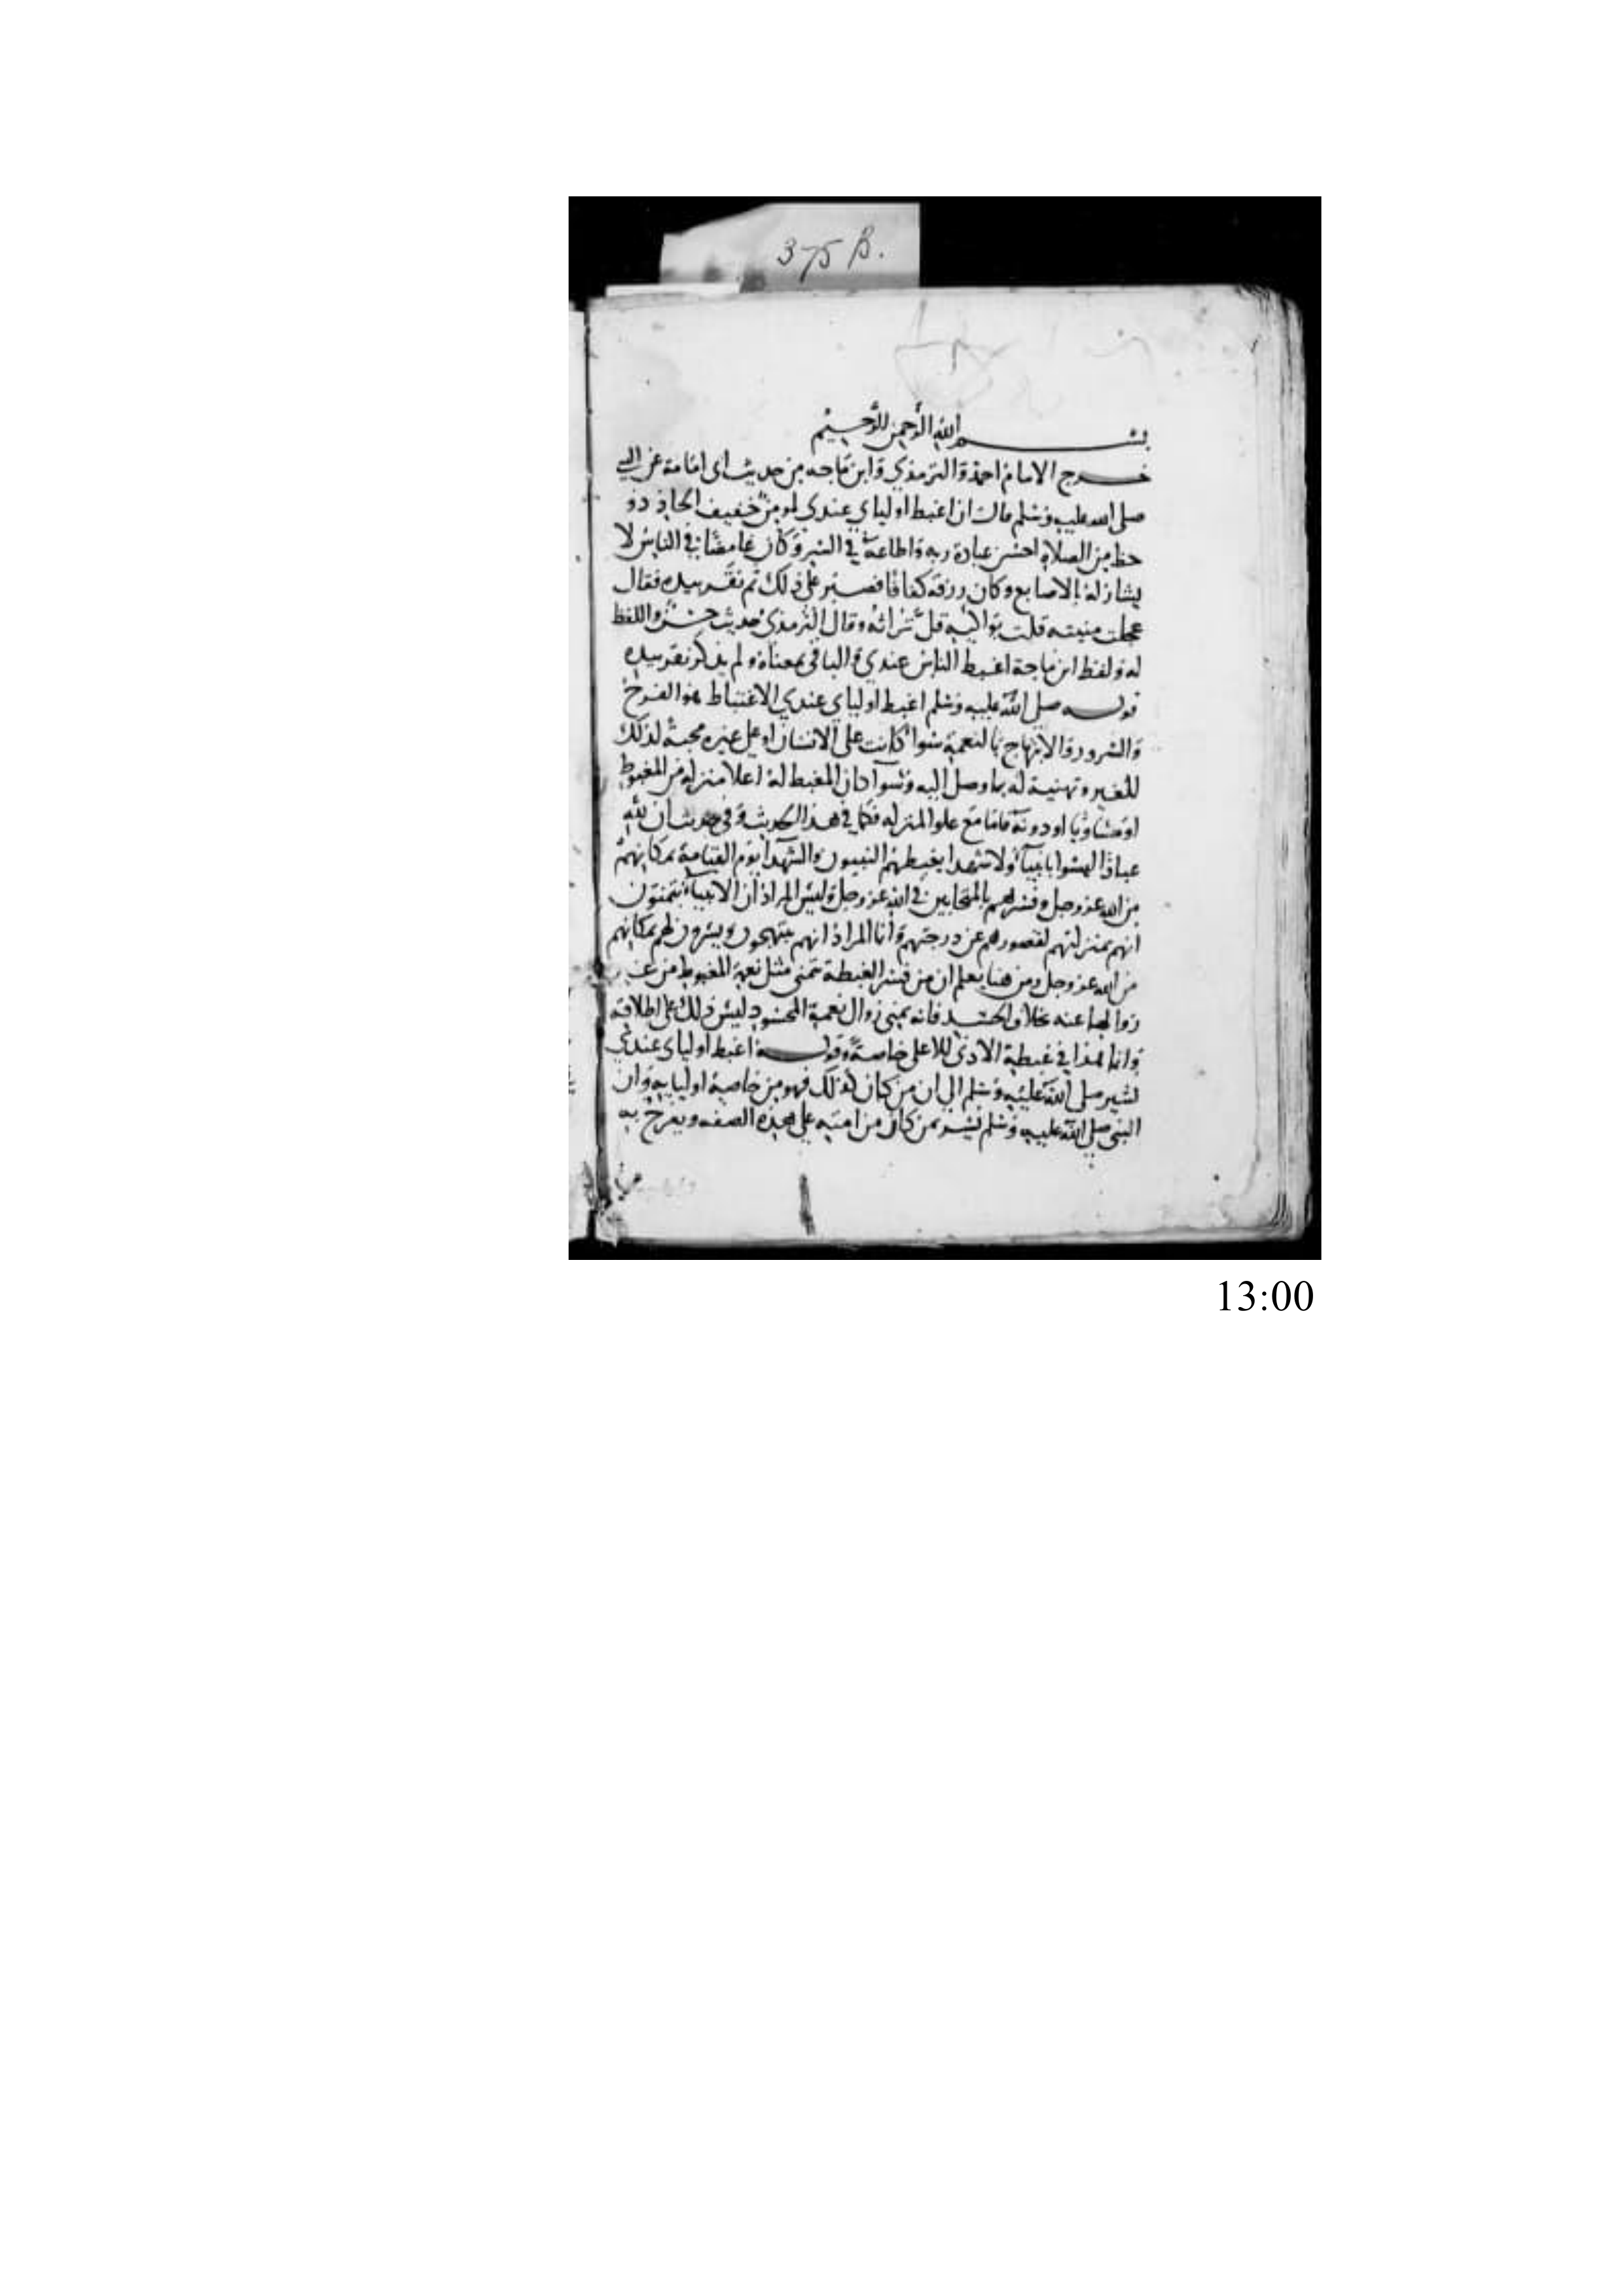 375 B.
بسم الله الرحمن الرحيم
خرج الامام احمد والترمذي وابن ماجه من حديث ابى امامة عن النبي
صلى الله عليه وسلم قال ان اغبط اولياي عندي لمومن خفيف الحاذ ذو
حظ من الصلاة احسن عبادة ربه واطاعه في السر وكان غامضا في الناس لا
يشار له بالاصابع وكان رزقه كفافا فصبر على ذلك ثم نقر بيده فقال
عجلت منيته قلت بواكيه قل تراثه وقال الترمذي حديث حسن واللفظ
له ولفظ ابن ماجة اغبط الناس عندي والباقي بمعناه ولم يذكر نقر بيده
قوله صلى الله عليه وسلم اغبط اولياي عندي الاغتباط هو الفرح
والسرور والابتهاج بالنعمة سوا كانت على الانسان او على غيره محبة لذلك
للغير وتهنية له بما وصل اليه وسوآ كان المغبط له اعلا منزله من المغبوط
او مساويا او دونه فاما مع علو المنزله فكما في هذا الحديث وفي حديث ان لله
عبادا ليسوا بانبيآ ولا شهدا يغبطهم النبيون والشهدآ يوم القيامة بمكانهم
من الله عز وجل وفسرهم بالمتحابين في الله عز وجل وليس المراد ان الانبيآ يتمنون
انهم بمنزلتهم لقصورهم عن درجتهم وانما المراد انهم يبتهجون ويسرون لهم بمكانهم
من الله عز وجل ومن هنا يعلم ان من فسر الغبطة بتمنى مثل نعمة المغبوط من غير
زوالها عنه بخلاف الحسد فانه تمنى زوال نعمة المحسود ليس ذلك على اطلاقه
وانما هذا في غبطة الادنى للاعلى خاصة وقوله اغبط اولياي عندي
يشير صلى الله عليه وسلم الى ان من كان كذلك فهو من خاصة اوليايه وان
النبى صلى الله عليه وسلم يسر بمن كان من امته على هذه الصفه ويفرح به
13:00